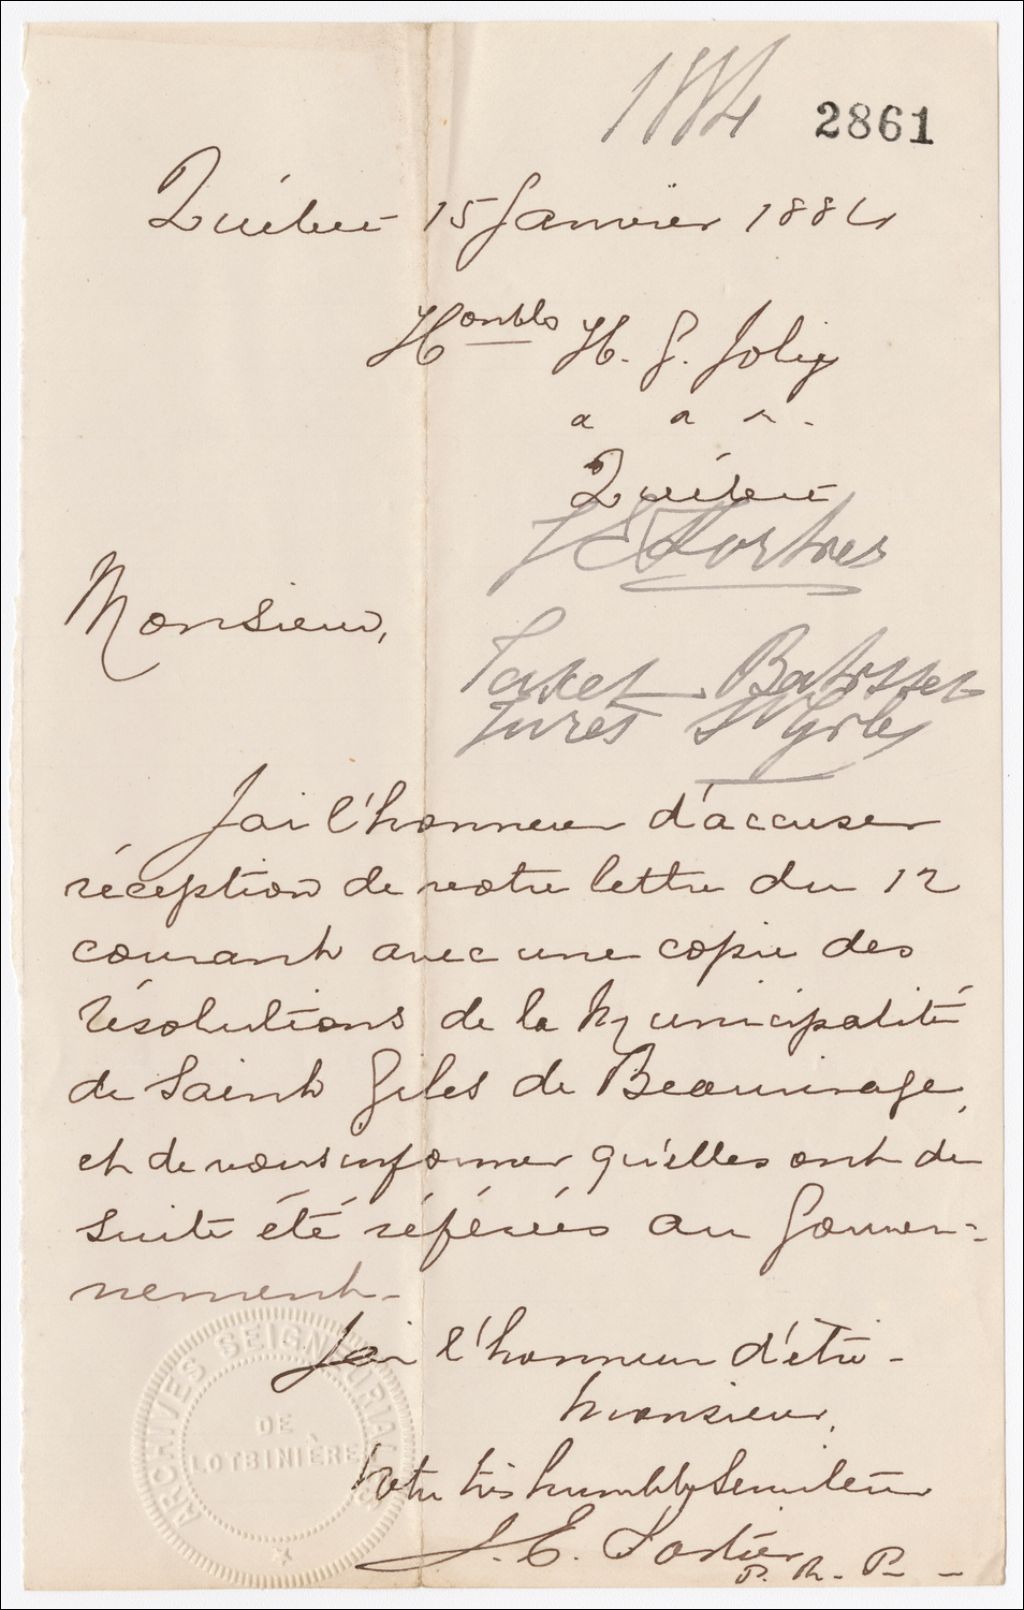 1884 2861
Québec 15 Janvier 1884
Honble H. G. Joly
a a a .
Québec
Monsieur,
Taxes
Jurés St Giles
Jai l'honneur d'accuser
réception de votre lettre du 12
courant avec une copie des
résolutions de la Municipalité
de Saint Giles de Beaurivage,
et de vous informer qu'elles ont de
suite été référées au Gouver-
nement-
Jai l'honneur d'être -
Monsieur,
Votre très humble Serviteur
J. E. Fortier
ARCHIVES SEIGNEURIALES
DE
LOTBINIÈRE